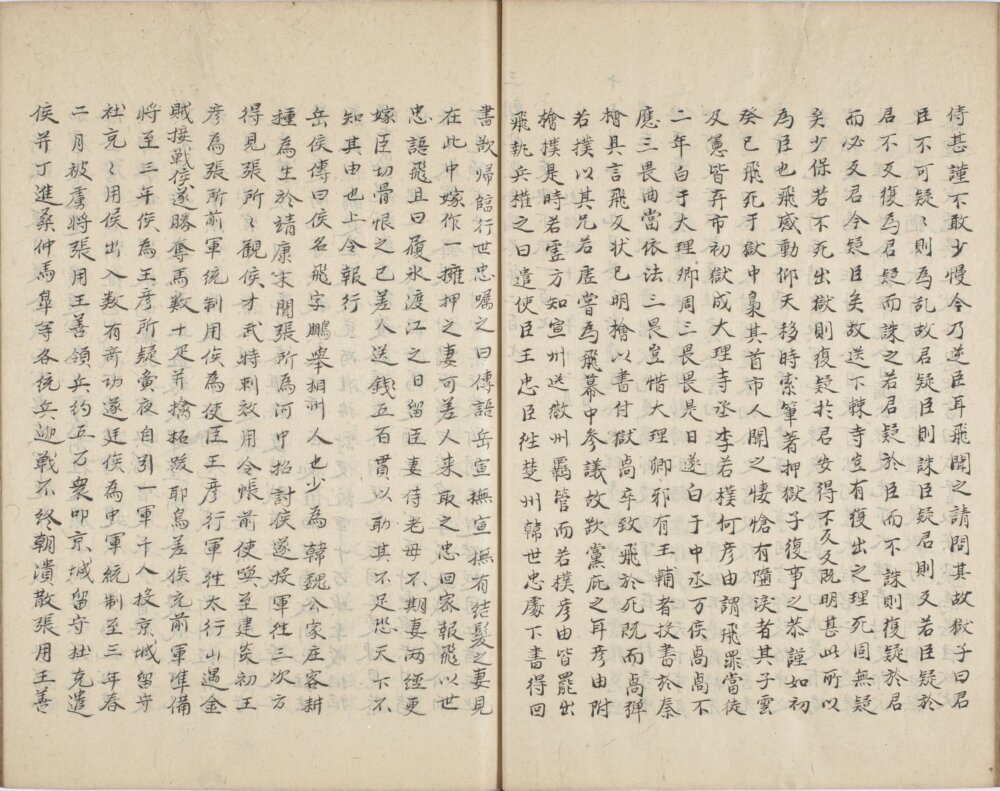 侍甚謹不敢少慢今乃逆臣耳飛聞之請問其故獄子曰君
臣不可疑〻則為乱故君疑臣則誅臣疑君則反若臣疑於
君不反復為君疑而誅之若君疑於臣而不誅則復疑於君
而必反君今疑臣矣故送下棘寺豈有復出之理死固無疑
矣少保若不死出獄則復疑於君安得不反反既明甚此所以
為臣也飛感動仰天移時索筆著押獄子復事之恭謹如初
癸巳飛死于獄中梟其首市人聞之悽愴有隨淚者其子雲
及憲皆弃市初獄成大理寺丞李若樸何彦由謂飛罪當徒
二年白于大理卿周三畏畏是日遂白于中丞万俟卨卨不
應三畏曲當依法三畏豈惜大理卿邪有王輔者投書於秦
檜具言飛反状已明檜以書付獄卨卒致飛於死既而卨彈
若樸以其兄若虛嘗為飛幕中參議故欺黨庇之耳彦由附
檜撲是時若虛方知宣州送徽州羈管而若樸彦由皆罷出
飛執兵權之日遣使臣王忠臣徃楚州韓世忠處下書得回
書欲歸館行世忠囑之曰傳語岳宣撫宣撫有结髮之妻見
在此中嫁作一擁押之妻可差人来取之忠回客報飛以世
忠語飛且曰履氷渡江之日留臣妻侍老母不期妻两經更
嫁臣切骨恨之已差人送錢五百貫以助其不足恐天下不
知其由也上令報行
岳侯傳曰侯名飛字鵬舉相州人也少為韓魏公家庄客耕
種為生於靖康末聞張所為河中招討侯遂投軍徃三次方
得見張所〻觀侯才武特刺效用令帳前使喚至建炎初王
彦為張所前軍統制用侯為使臣王彦行軍徃太行山遇金
賊接戰侯遂勝奪馬数十疋并擒拓跋耶烏差侯充前軍准備
將至三年侯為王彦所疑夤夜自引一軍千人投京城留守
杜充〻用侯出入数有竒功遂廷侯為中軍統制至三年春
二月被虜將張用王善領兵約五万衆叩京城留守杜充遣
侯并丁進桑仲馬皐等各統兵迎戰不終朝潰散張用王善